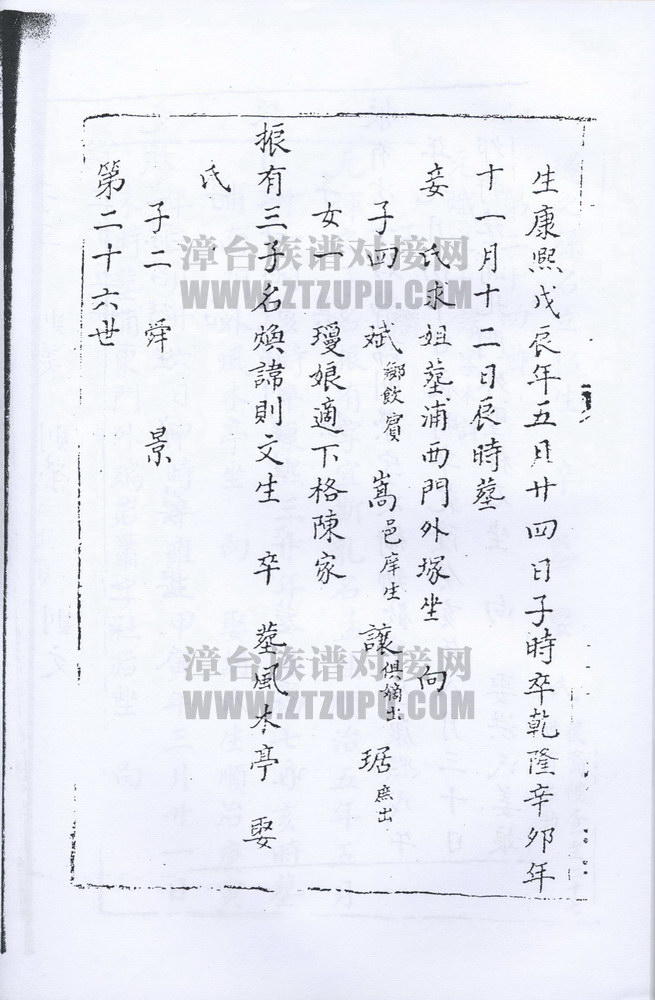 生康熙戊辰年五月廿四日子時卒乾隆辛卯年
十一月十二日辰時墓
妾 氏求姐墓浦西門外塚坐 向
子四 斌鄉飲賓 嵩邑庠生 讓俱嫡出 琚庶出
女一 璦娘適下格陳家
振有三子名煥諱則文生 卒 墓風木亭 娶
氏
子二 舜 景
第二十六世
漳台族谱对接网
WWW.ZTZUPU.COM
漳台族谱对接网
WWW.ZTZUPU.COM